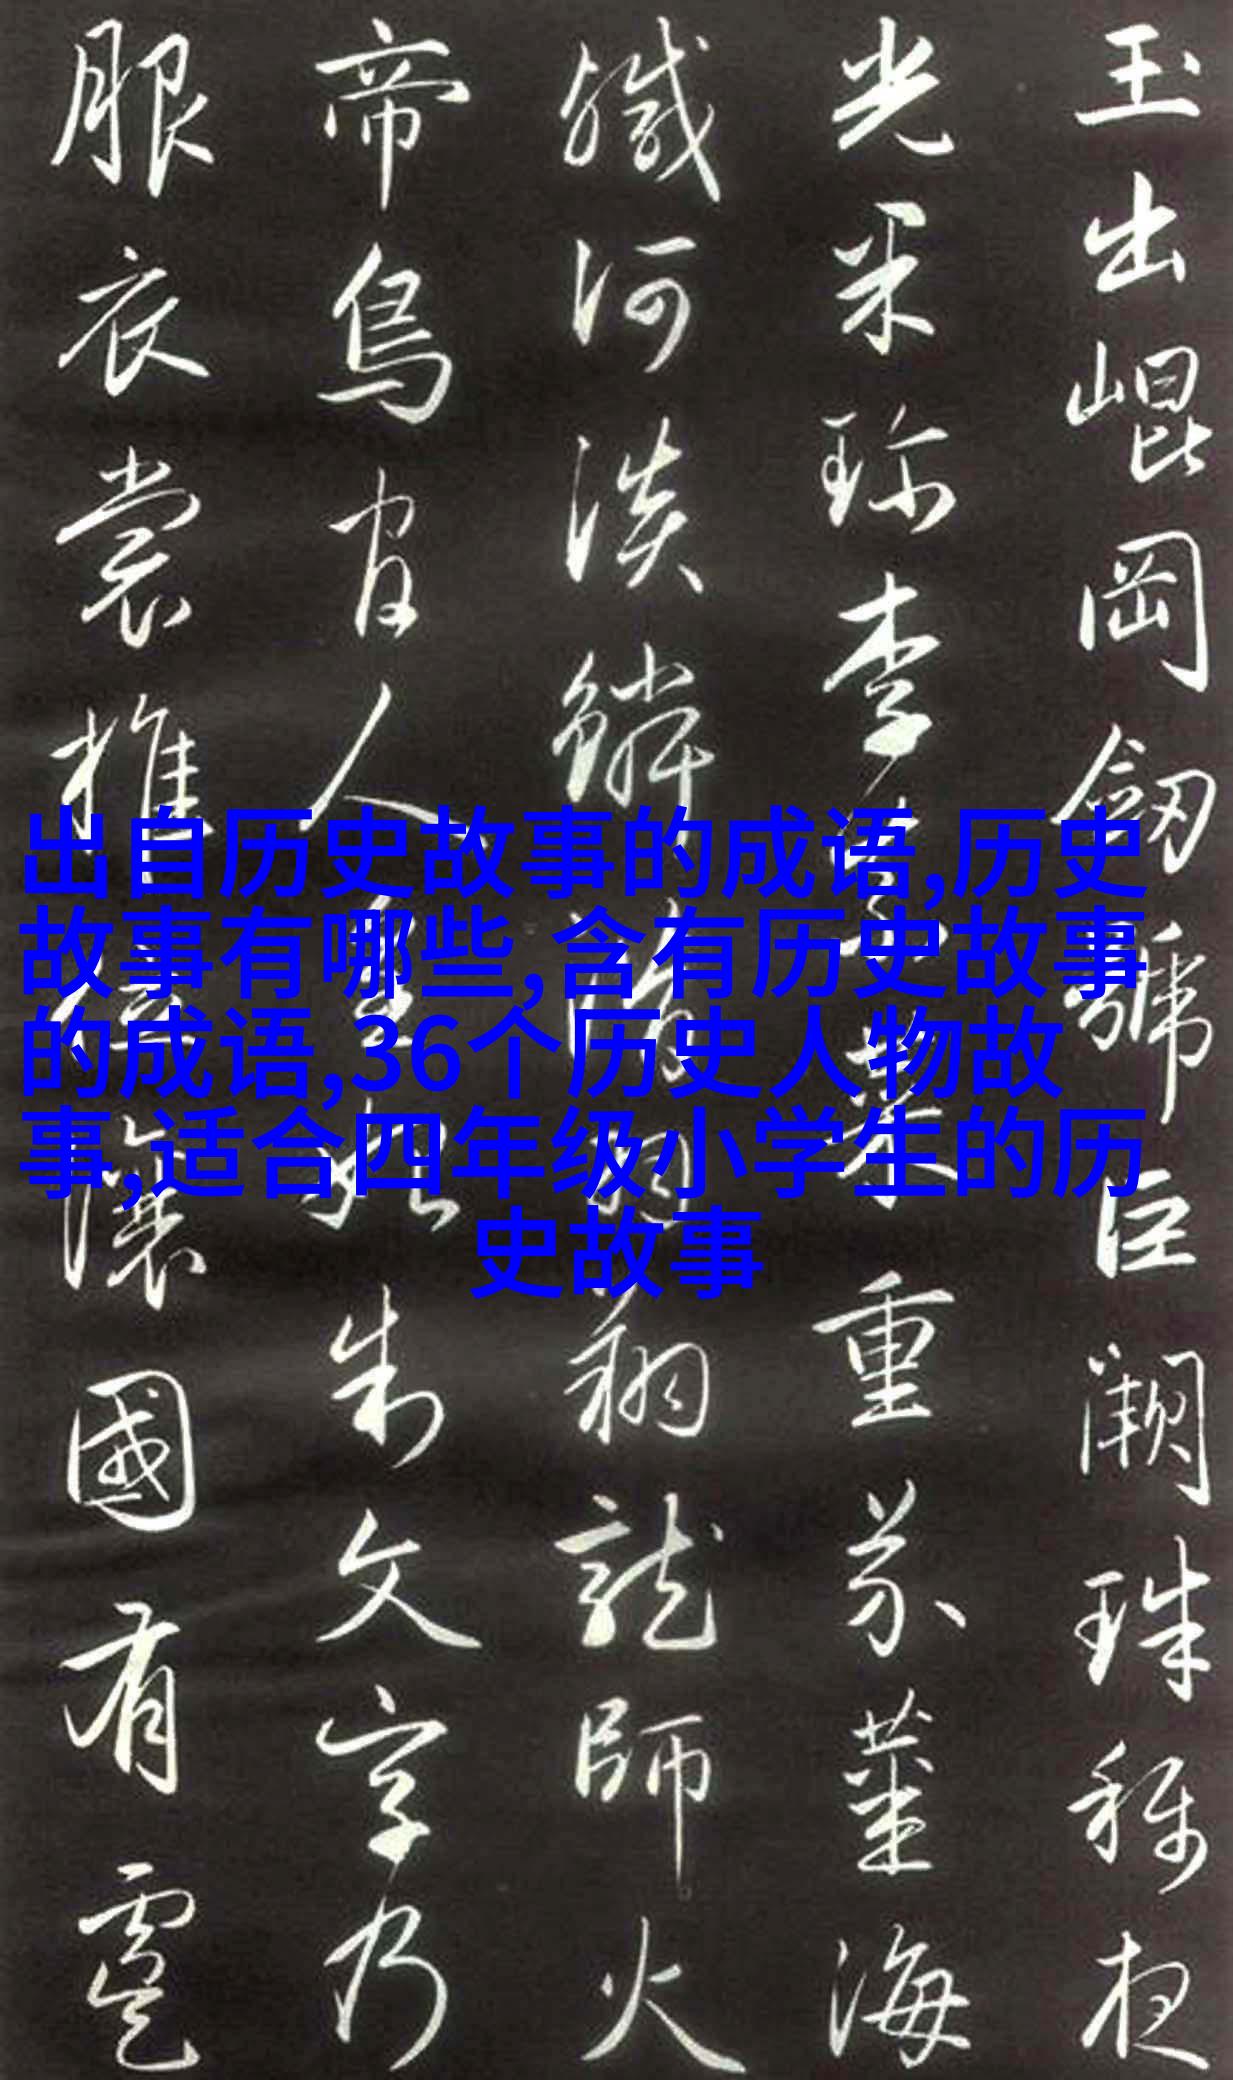 玉出崐岡劒號巨闕珠稱夜
光果珍李柰菜重芥薑海
鹹河淡鱗潛羽翔龍師火
帝鳥官人皇始制文字乃
服衣裳推位讓國有虞
出自历史故事的成语,历史
故事有哪些,含有历史故事
的成语,36个历史人物故
事,适合四年级小学生的历
史故事